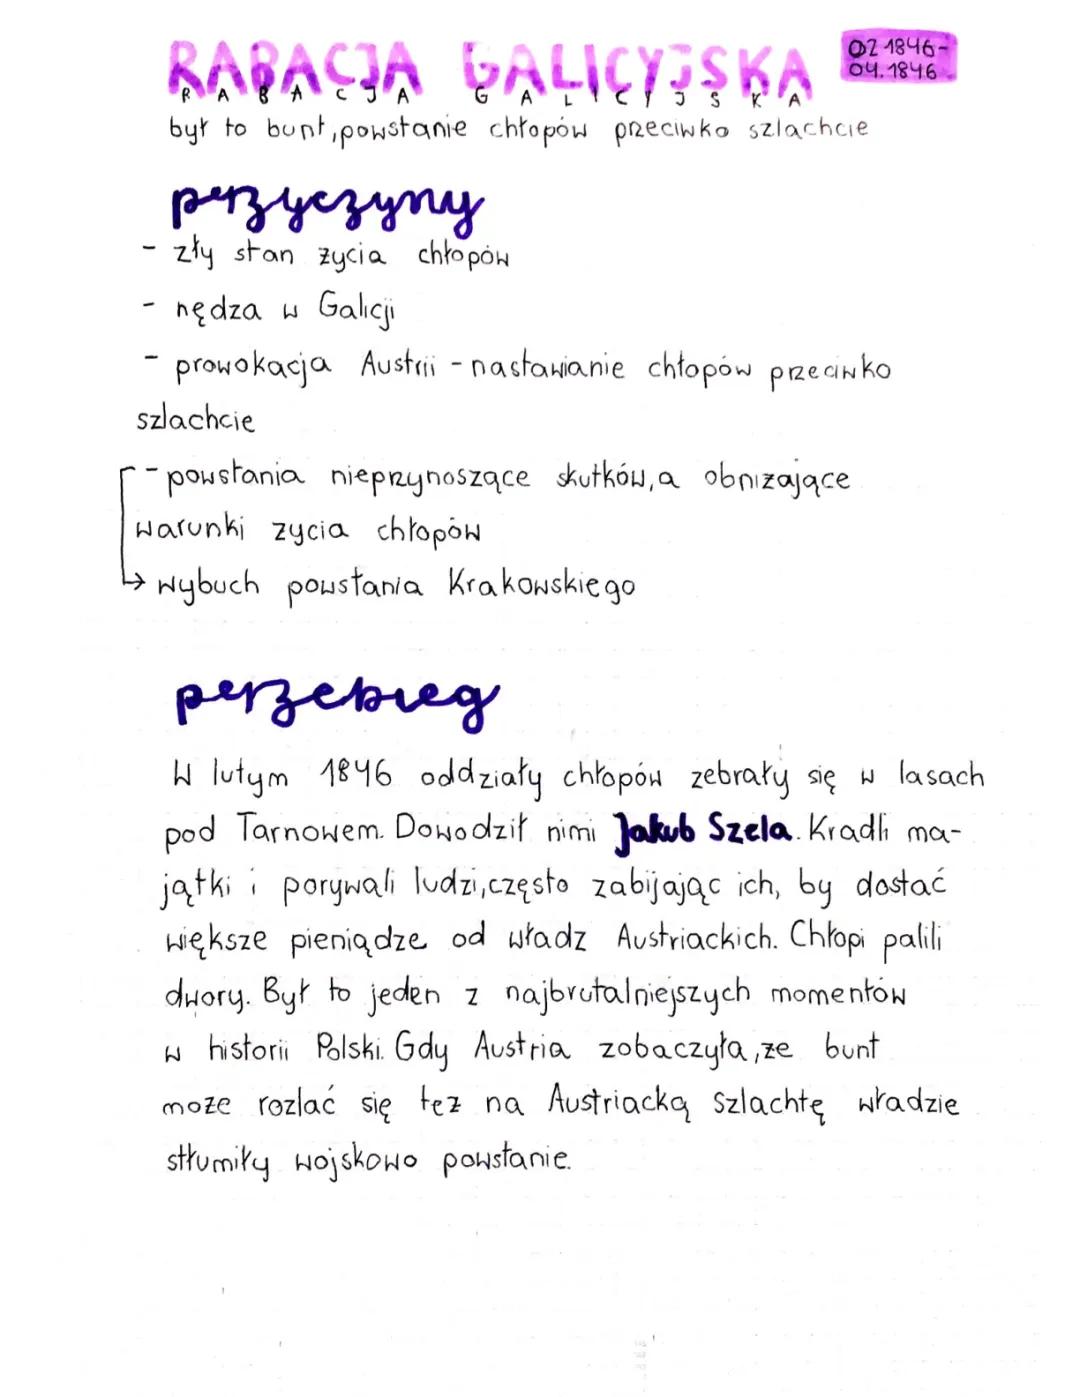 RABACJA GALICYJSKA
RABACJA GALICYJSKA
02 1846-
04.1846
był to bunt, powstanie chłopów przeciwko szlachcie
przyczyny
- zły stan życia chłopów
- nędza w Galicji
- prowokacja Austrii - nastawianie chłopów przeciwko
szlachcie
- powstania nieprzynoszące skutków, a obniżające
warunki zycia chłopów
→ wybuch powstania Krakowskiego
przebieg
W lutym 1846 oddziały chłopów zebrały się w lasach
pod Tarnowem. Dowodził nimi Jakub Szela. Kradli ma-
jątki i porywali ludzi, często zabijając ich, by dostać
większe pieniądze od władz Austriackich. Chłopi palili
dwory. Był to jeden z najbrutalniejszych momentów
w historii Polski. Gdy Austria zobaczyła, ze bunt
może rozlać się też na Austriacką szlachtę władzie
stłumiły wojskowo powstanie.